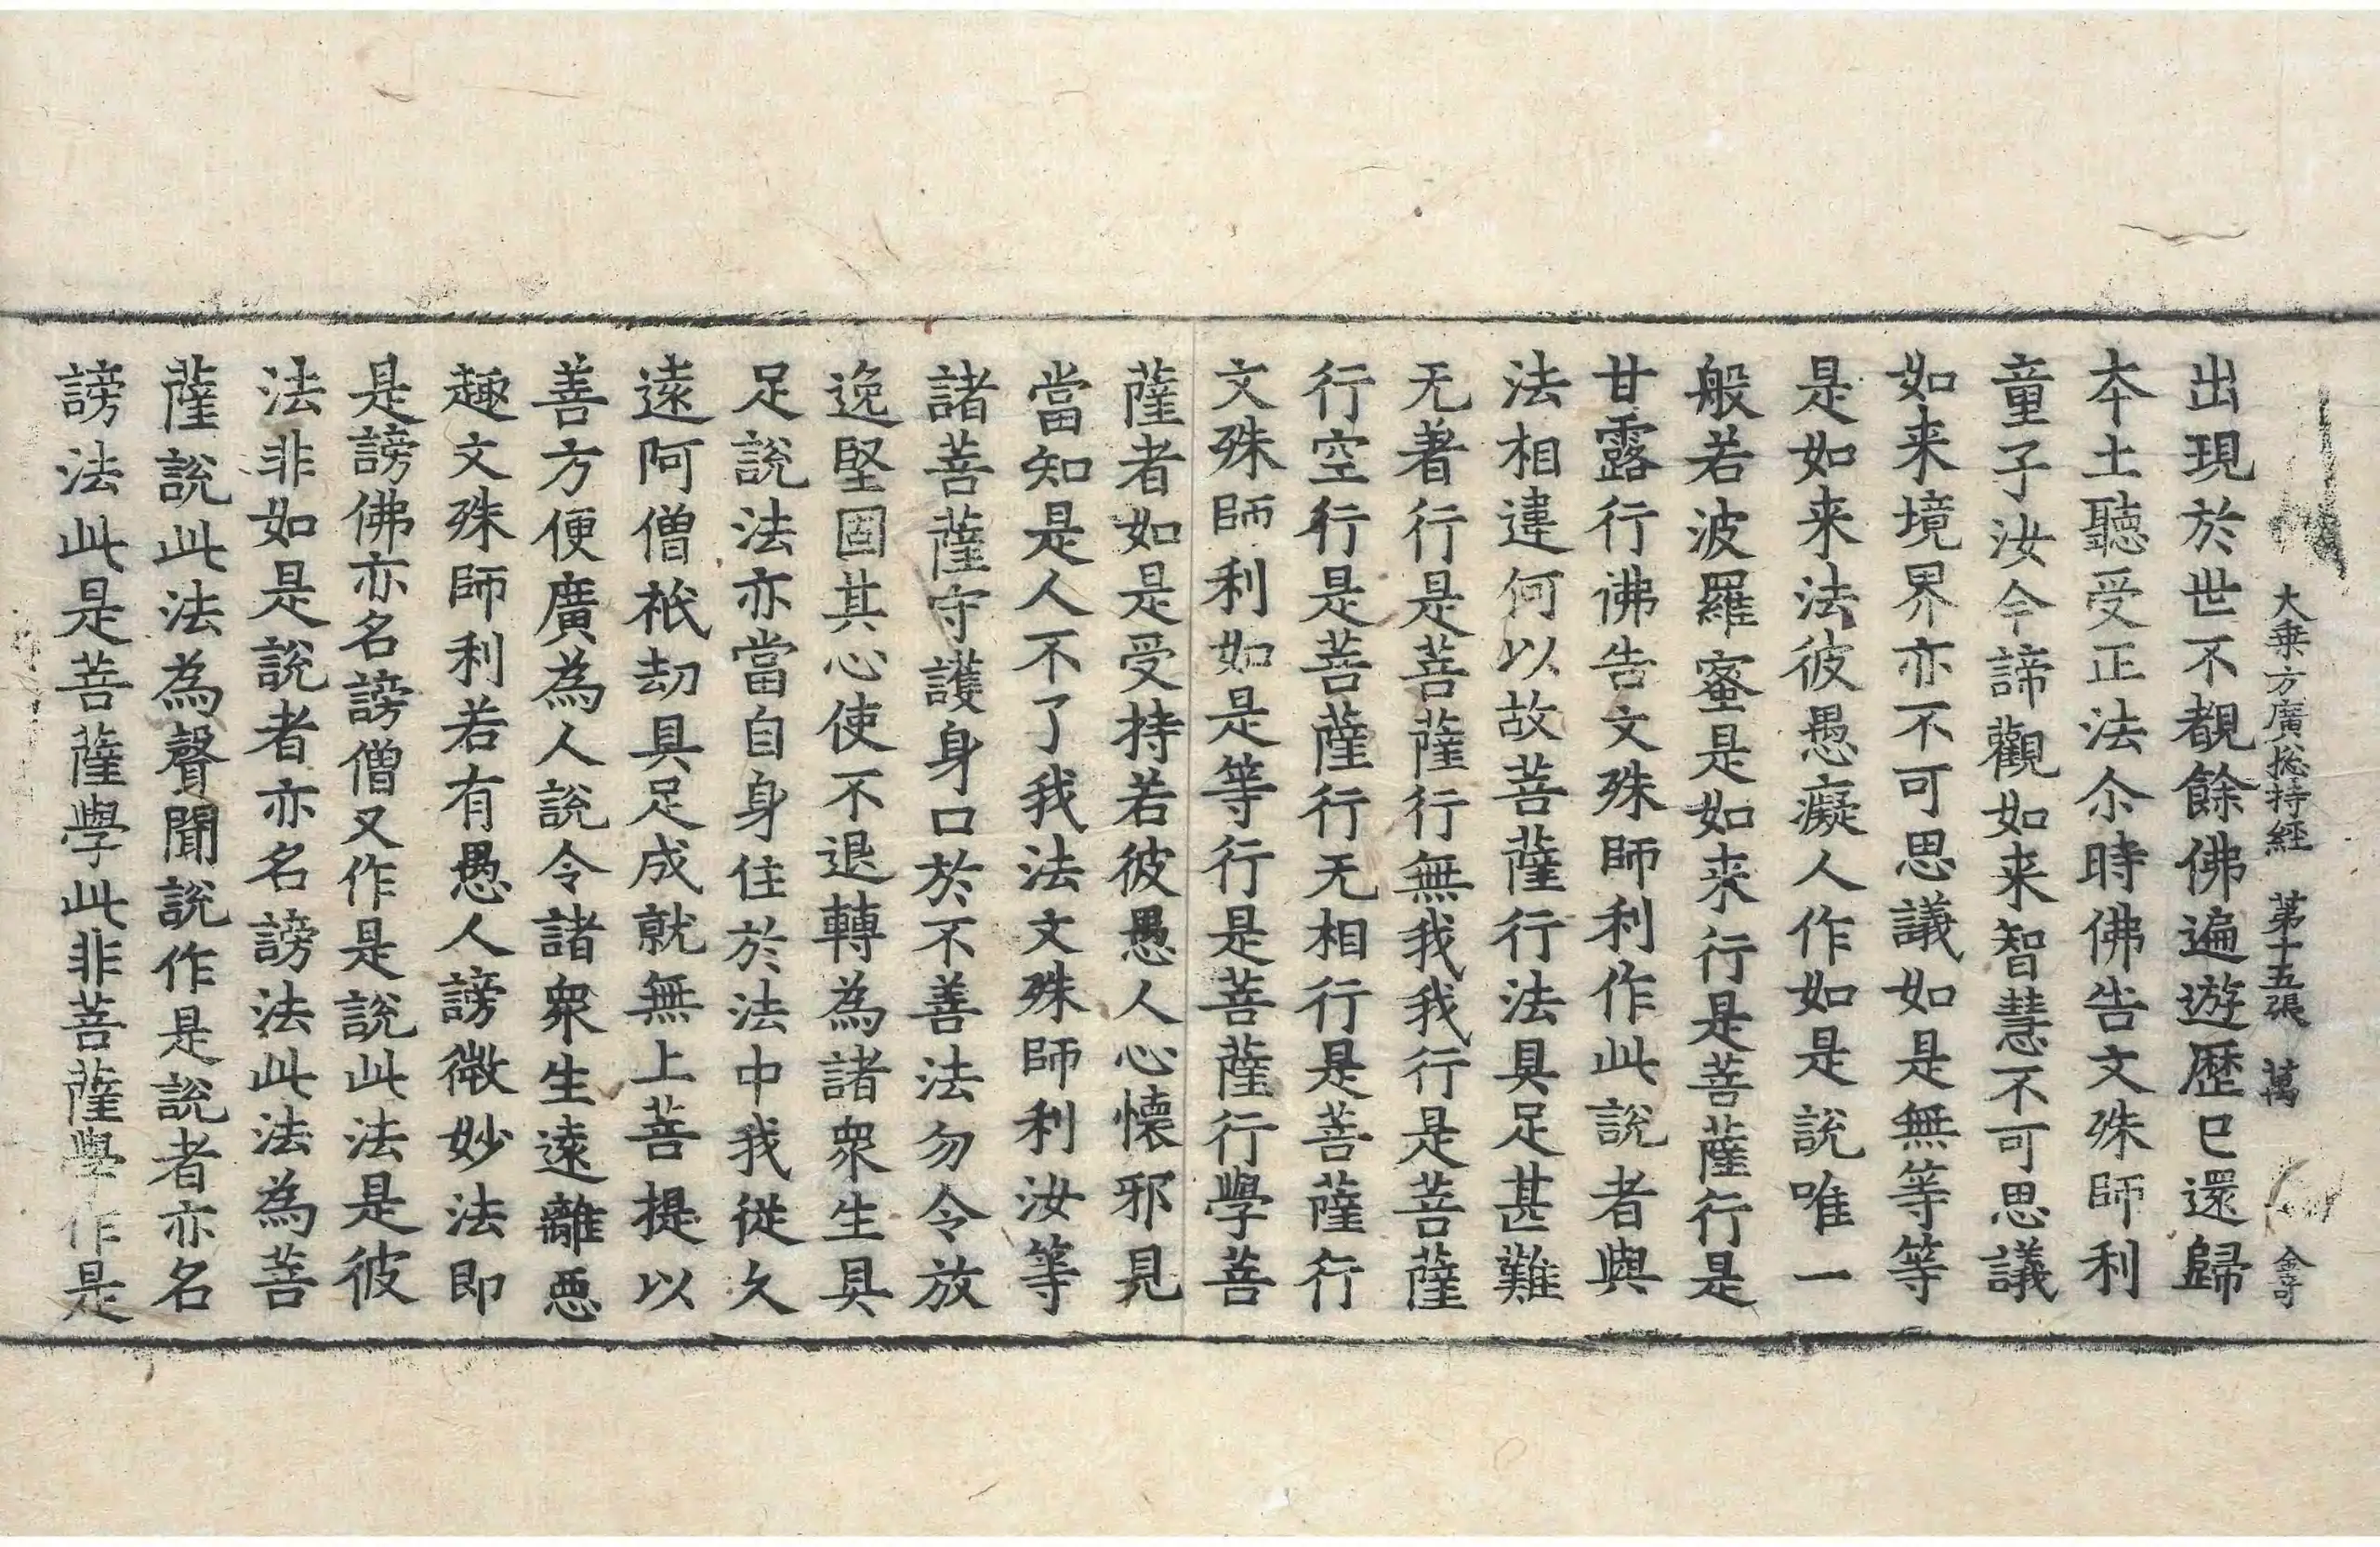 大乗方廣捴持經　第十五張　萬　金哥
出現於世不覩餘佛遍遊歷已還歸
本土聽受正法尒時佛告文殊師利
童子汝今諦觀如来智慧不可思議
如来境界亦不可思議如是無等等
是如来法彼愚癡人作如是說唯一
般若波羅蜜是如来行是菩薩行是
甘露行佛告文殊師利作此說者與
法相違何以故菩薩行法具足甚難
无著行是菩薩行無我我行是菩薩
行空行是菩薩行无相行是菩薩行
文殊師利如是等行是菩薩行學菩
薩者如是受持若彼愚人心懷邪見
當知是人不了我法文殊師利汝等
諸菩薩守護身口於不善法勿令放
逸堅固其心使不退轉為諸衆生具
足說法亦當自身住於法中我從久
遠阿僧祇劫具足成就無上菩提以
善方便廣為人說令諸衆生遠離惡
趣文殊師利若有愚人謗微妙法即
是謗佛亦名謗僧又作是說此法是彼
法非如是說者亦名謗法此法為菩
薩說此法為聲聞說作是說者亦名
謗法此是菩薩學此非菩薩學作是